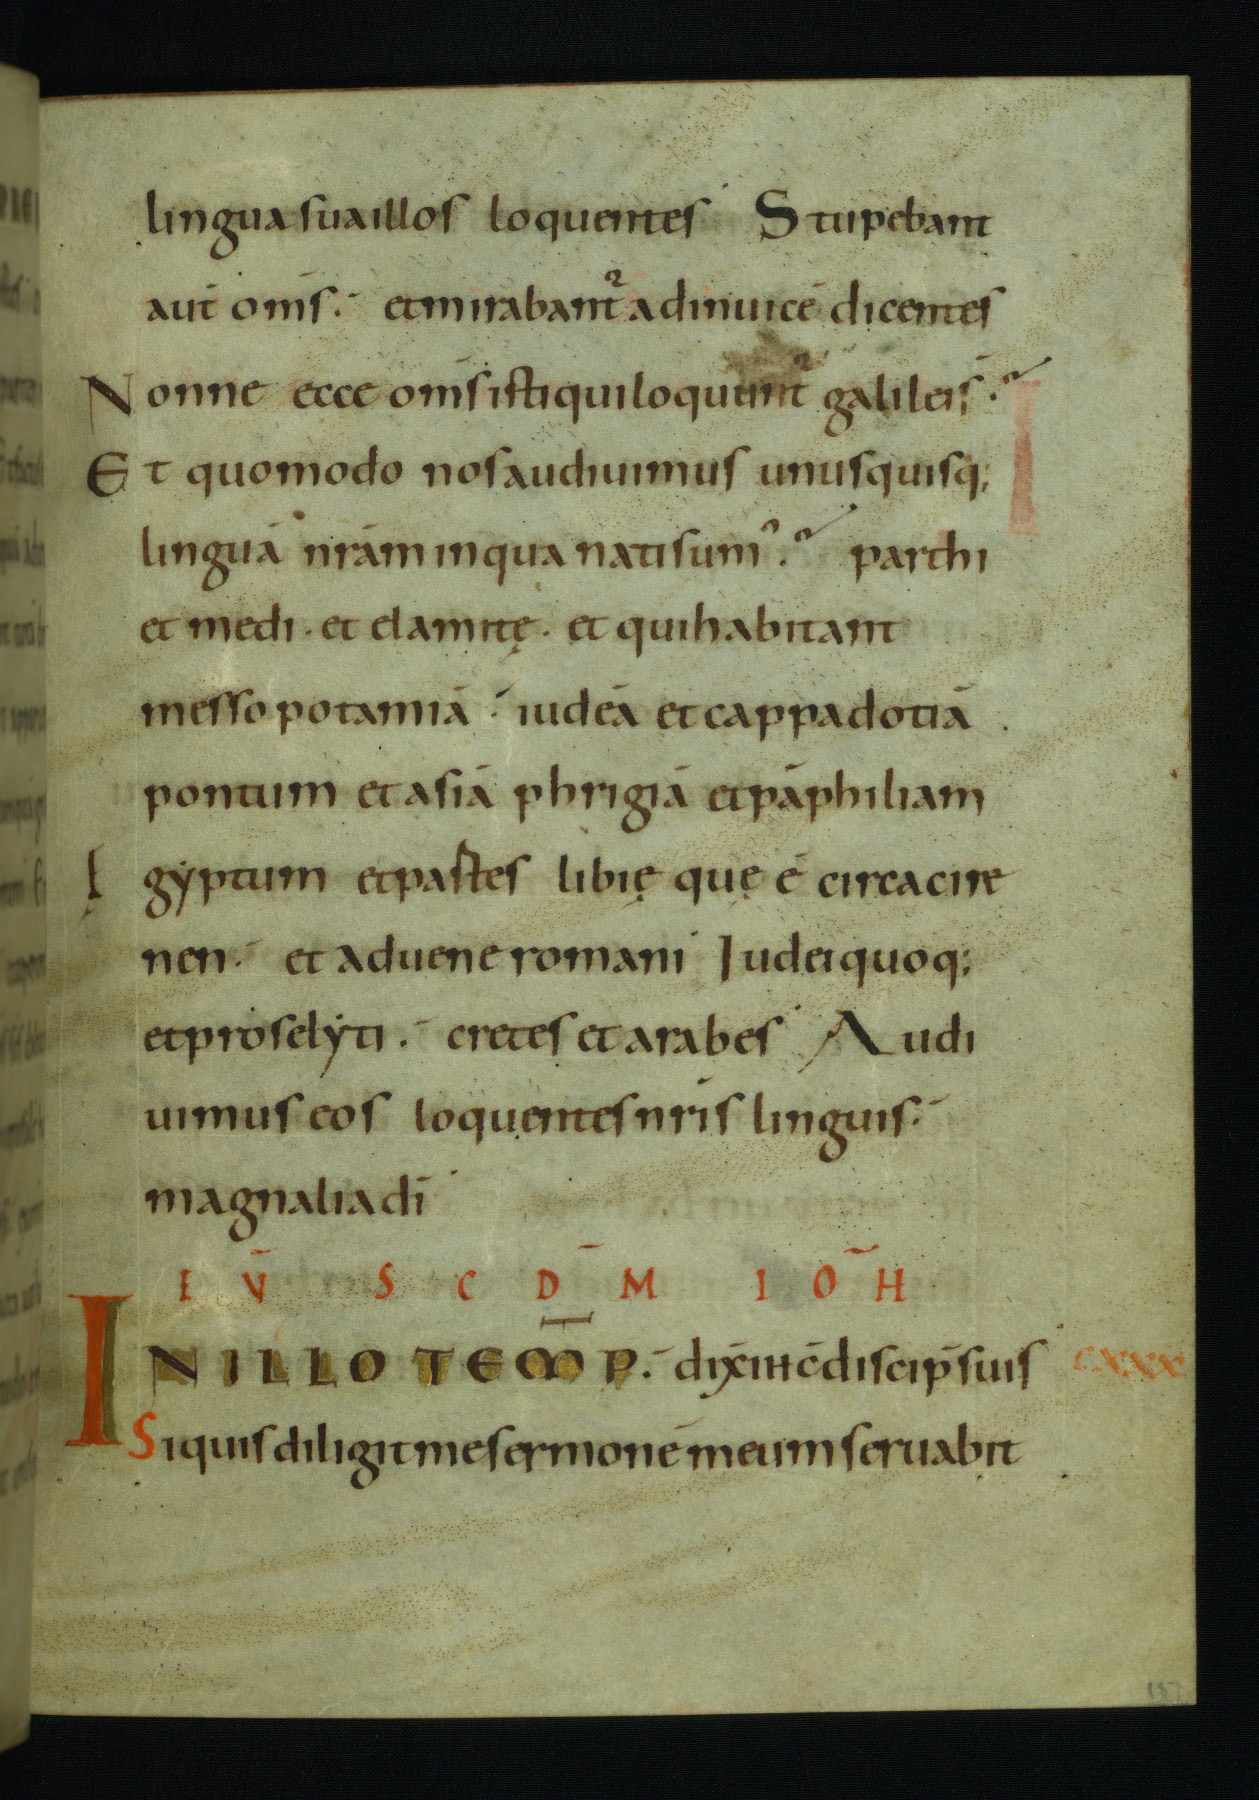 lingua sua illos loquentes Stupebant
aut̄ om̄s. et mirabant᷑ adinuicē dicentes
Nonne ecce om̄s isti qui loquunt᷑ galilei s̄.
Et quomodo nos audiuimus unusquisq;
linguā nr̄am in qua nati sum᾽. parthi
et medi. et elamitę. et qui habitant
messopotamiā. iudeā et cappadotiā
pontum et asiā phrigiā et pāphiliam
Ęgyptum et partes libię quę ē circa cire
nen. et aduene romani Iudei quoq;
et proselyti. cretes et arabes Audi
uimus eos loquentes nr̄is linguis.
magnalia dī
EV̄ SCD̄M IOH̄
IN ILLO TEM̄P. dix̄ ih̄c discip̄ suis CXXX
Si quis diligit me sermonē meum seruabit
187